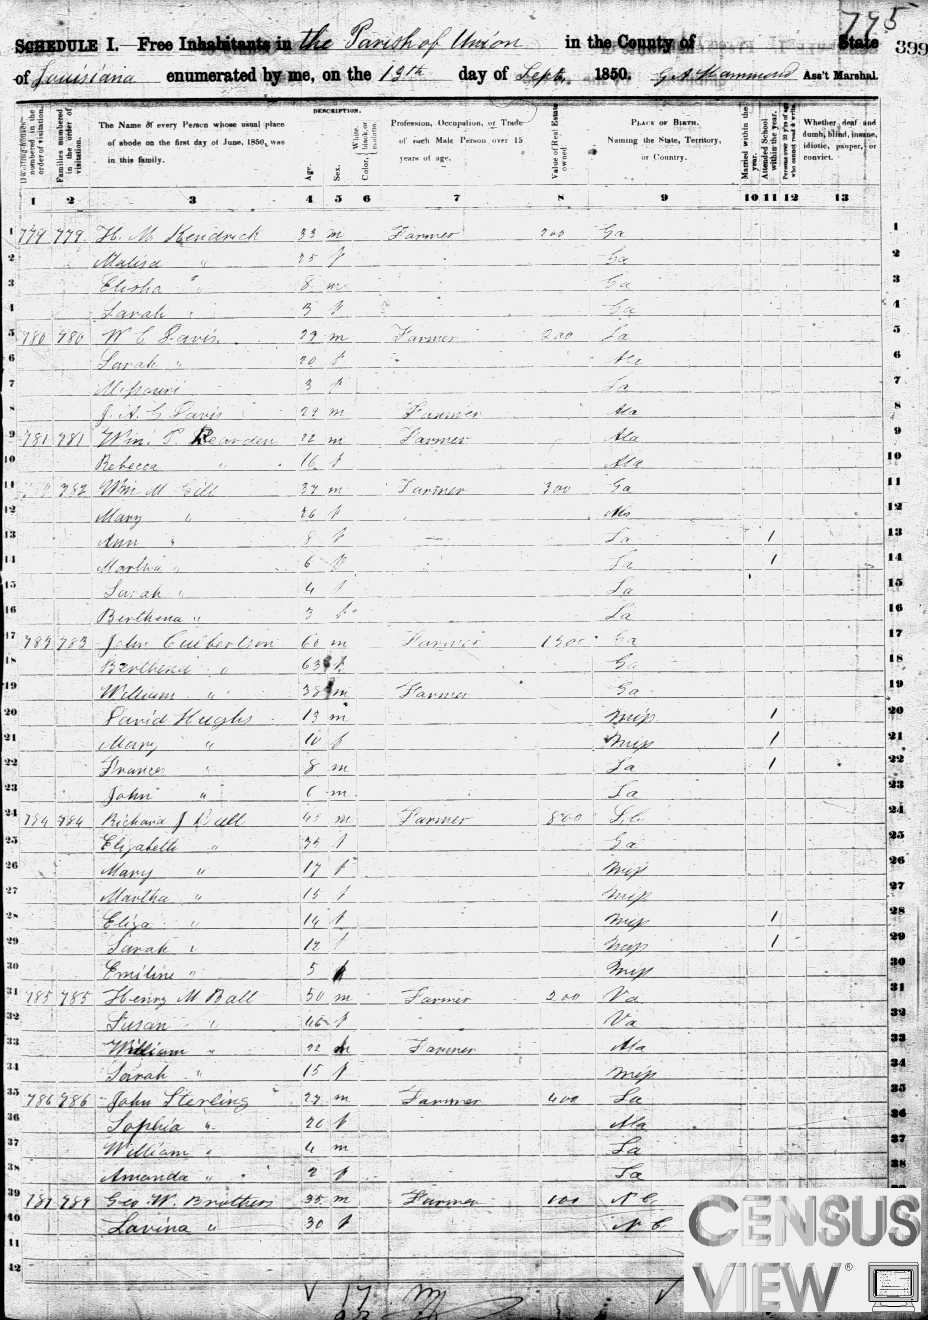 795
SCHEDULE I. Free Inhabitants in the Parish of Union in the County of State 399
of Louisiana enumerated by me, on the 13th day of Sept. 1850. Ass't Marshal.
Dwelling-houses numbered in the order of visitation.
Families numbered in the order of visitation.
The Name of every Person whose usual place of abode on the first day of June, 1850, was in this family.
DESCRIPTION.
Age.
Sex.
Color, White, black, or mulatto.
Profession, Occupation, or Trade of each Male Person over 15 years of age.
Value of Real Estate owned.
PLACE OF BIRTH. Naming the State, Territory, or Country.
Married within the year.
Attended School within the year.
Persons over 20 y'rs of age who cannot read & write.
Whether deaf and dumb, blind, insane, idiotic, pauper, or convict.
1 2 3 4 5 6 7 8 9 10 11 12 13
1 779 779 H. M. Kendrick 33 m Farmer 200 Ga 1
2 Malisa " 25 f Ga 2
3 Elisha " 8 m Ga 3
4 Sarah " 3 f Ga 4
5 780 780 W C Davis 29 m Farmer 200 La 5
6 Sarah " 20 f 6
7 Missouri 3 f La 7
8 J. A. G Davis 22 m Farmer Ala 8
9 781 781 Wm. P. Rearden 22 m Farmer Ala 9
10 Rebecca " 16 f Ala 10
11 782 Wm M Gill 37 m Farmer 300 Ga 11
12 Mary " 26 f 12
13 Ann " 8 f La 1 13
14 Martha " 6 f La 1 14
15 Sarah " 4 f La 15
16 Berthena " 3 f La 16
17 783 783 John Culbertson 60 m Farmer 1500 Ga 17
18 " 63 f Ga 18
19 William " 38 m Farmer Ga 19
20 David Hughs 13 m Miss 1 20
21 Mary " 10 f Miss 1 21
22 Frances " 8 m La 1 22
23 John " 6 m La 23
24 784 784 Richard J 45 m Farmer 800 S.C. 24
25 Elizabeth " 35 f Ga 25
26 Mary " 17 f Miss 26
27 Martha " 15 f Miss 27
28 Eliza " 14 f Miss 1 28
29 Sarah " 12 f Miss 1 29
30 Emiline " 5 f Miss 30
31 785 785 Henry M Ball 50 m Farmer 200 Va 31
32 Susan " 46 f Va 32
33 William " 22 m Farmer Ala 33
34 Sarah " 15 f Miss 34
35 786 786 John Sterling 27 m Farmer 400 La 35
36 Sophia " 26 f Ala 36
37 William " 4 m La 37
38 Amanda " 2 f La 38
39 787 787 Geo W. Brothers 35 m Farmer 100 N C
40 Lavina " 30 f N C
41
42
CENSUS
VIEW®